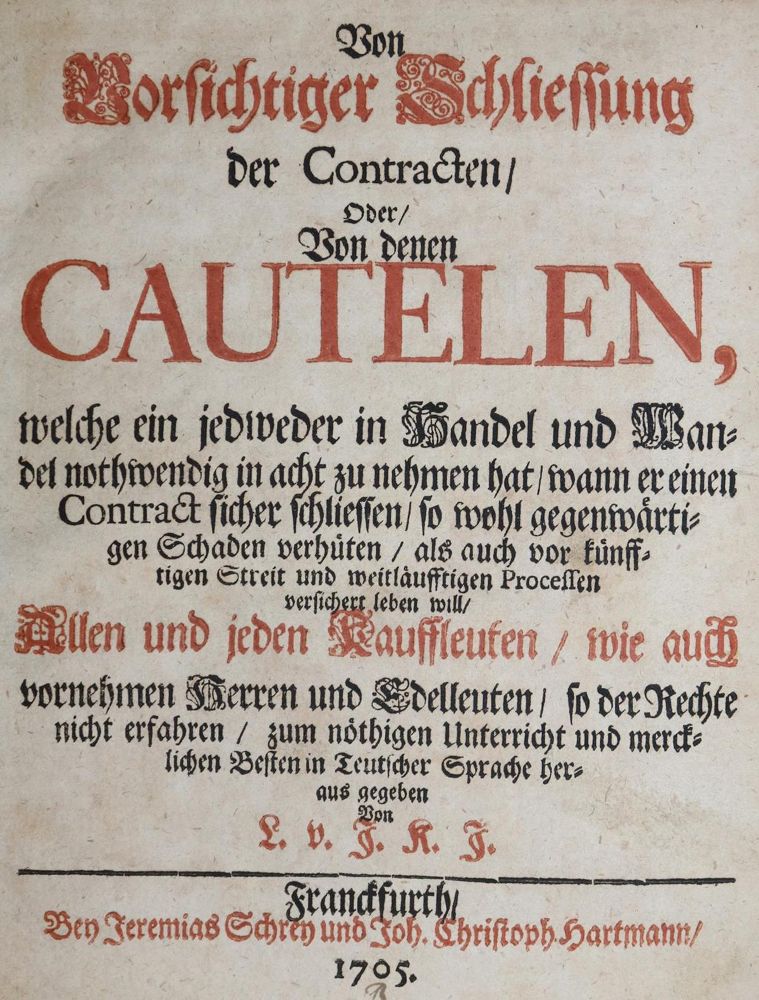 Von
Vorsichtiger Schliessung
der Contracten/
Oder/
Von denen
CAUTELEN,
welche ein jedweder in Handel und Wan-
del nothwendig in acht zu nehmen hat/ wann er einen
Contract sicher schliessen/ so wohl gegenwärti-
gen Schaden verhüten / als auch vor künff-
tigen Streit und weitläufftigen Processen
versichert leben will/
Allen und jeden Kauffleuten / wie auch
vornehmen Herren und Edelleuten/ so der Rechte
nicht erfahren / zum nöthigen Unterricht und merck-
lichen Besten in Teutscher Sprache her-
aus gegeben
Von
L. v. J. K. J.
Franckfurth/
Bey Jeremias Schrey und Joh. Christoph Hartmann/
1705.